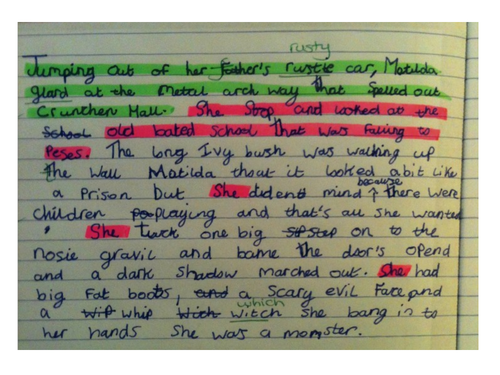 rusty
Jumping out of her father's rustie car, Matilda
glard at the metal arch way that spelled out
Crunchen Mall. She stop and looked at the
School old bated school that was falling to
peses. The long Ivy bush was walking up
the wall Matilda thout it looked abit like
because
a prison but She dident mind ↑ there were
children playing and that's all she wanted
. She tuck one big step on to the
nosie gravil and bame the door's opend
and a dark shadow marched out. She had
big fat boots, and a scary evil face and
which
a whip witch she bang in to
her hands She was a monster.